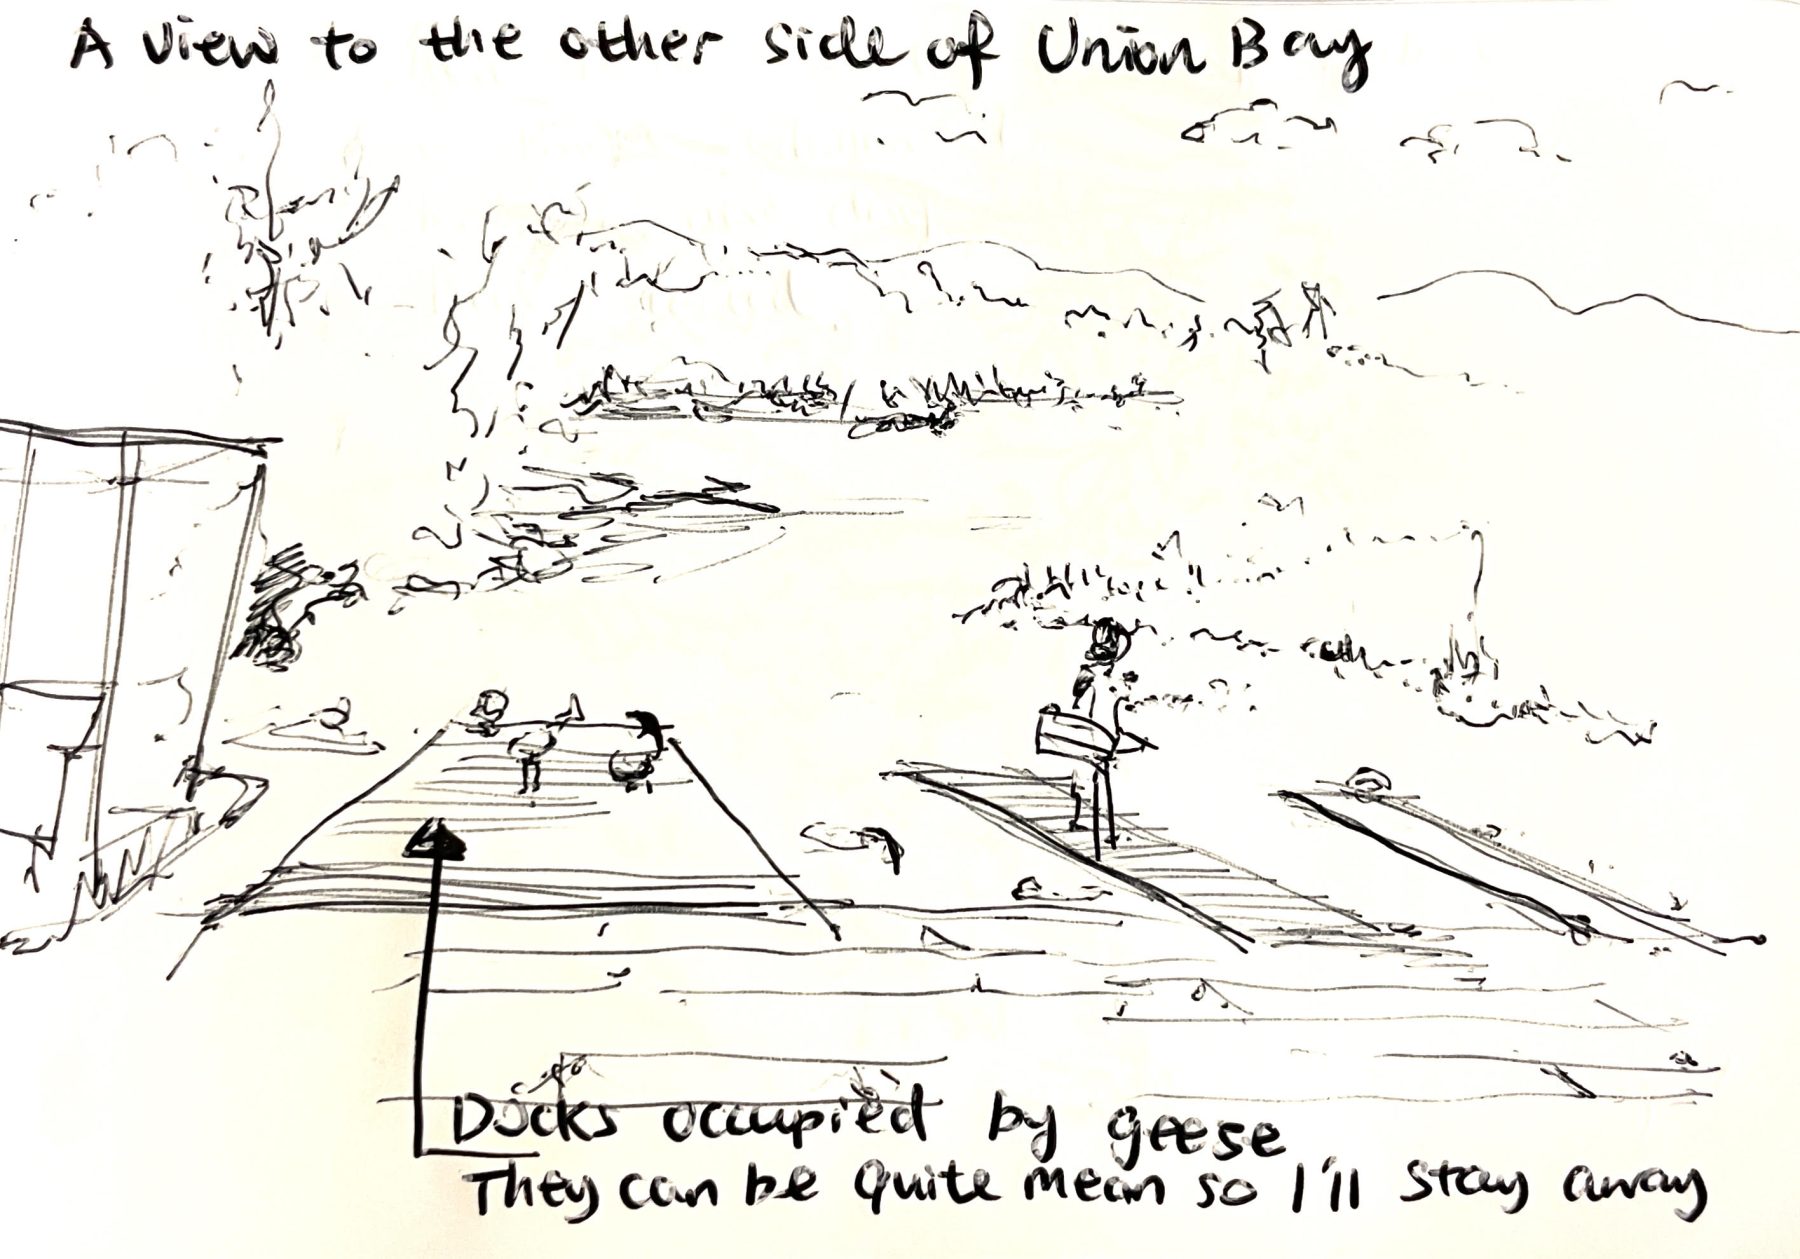 A view to the other side of Union Bay
Docks occupied by geese
They can be quite mean so I'll stay away